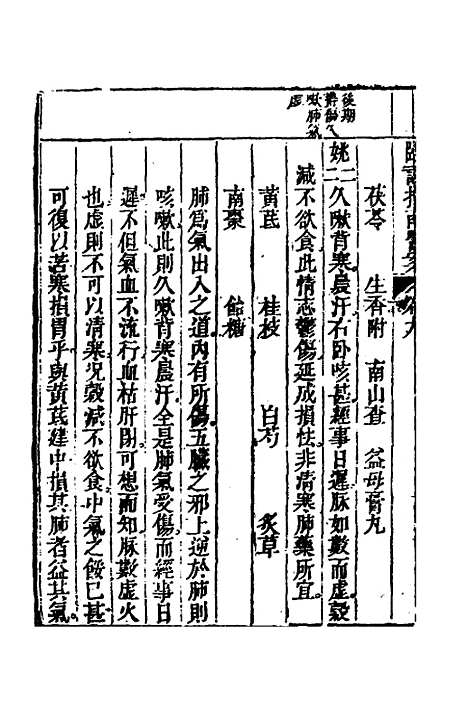 臨證指南醫案 卷九
後期
鬱傷久
嗽肺氣
虛
茯苓 生香附 南山查 益母膏丸
姚二二久嗽背寒晨汗右卧咳甚經事日遲脉如數而虛穀
減不欲食此情志鬱傷延成損怯非清寒肺藥所宜
黃芪 桂枝 白芍 炙草
南棗 飴糖
肺爲氣出入之道內有所傷五臟之邪上逆於肺則
咳嗽此則久嗽背寒晨汗全是肺氣受傷而經事日
遲不但氣血不流行血枯肝閉可想而知脉數虛火
也虛則不可以清寒况穀減不欲食中氣之餒已甚
可復以苦寒損胃乎與黃芪建中損其肺者益其氣